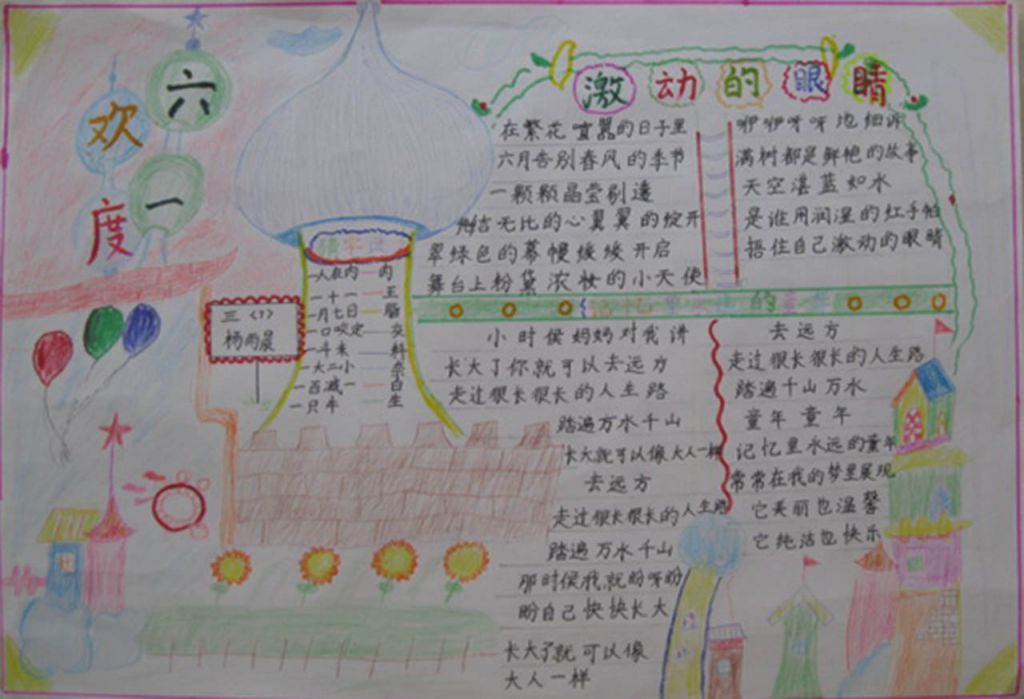 欢度
六一
三(1)
杨雨晨
猜字谜
一人在内 肉
一十一 王
一月七日 脂
一口咬定 交
一斗米 料
一大二小 奈
一百减一 白
一只牛 生
激动的眼睛
在繁花喧嚣的日子里
六月告别春风的季节
一颗颗晶莹剔透
无比的心翼翼的绽开
翠绿色的幕幔缓缓开启
舞台上粉黛浓妆的小天使
咿咿呀呀地细诉
满树都是鲜艳的故事
天空湛蓝如水
是谁用润湿的红手帕
捂住自己激动的眼睛
记忆里永远的童年
小时侯妈妈对我讲
长大了你就可以去远方
走过很长很长的人生路
踏遍万水千山
长大就可以像大人一样
去远方
走过很长很长的人生路
踏遍万水千山
那时侯我就盼呀盼
盼自己快快长大
长大了就可以像
大人一样
去远方
走过很长很长的人生路
踏遍千山万水
童年童年
记忆里永远的童年
常常在我的梦里展现
它美丽也温馨
它纯洁也快乐